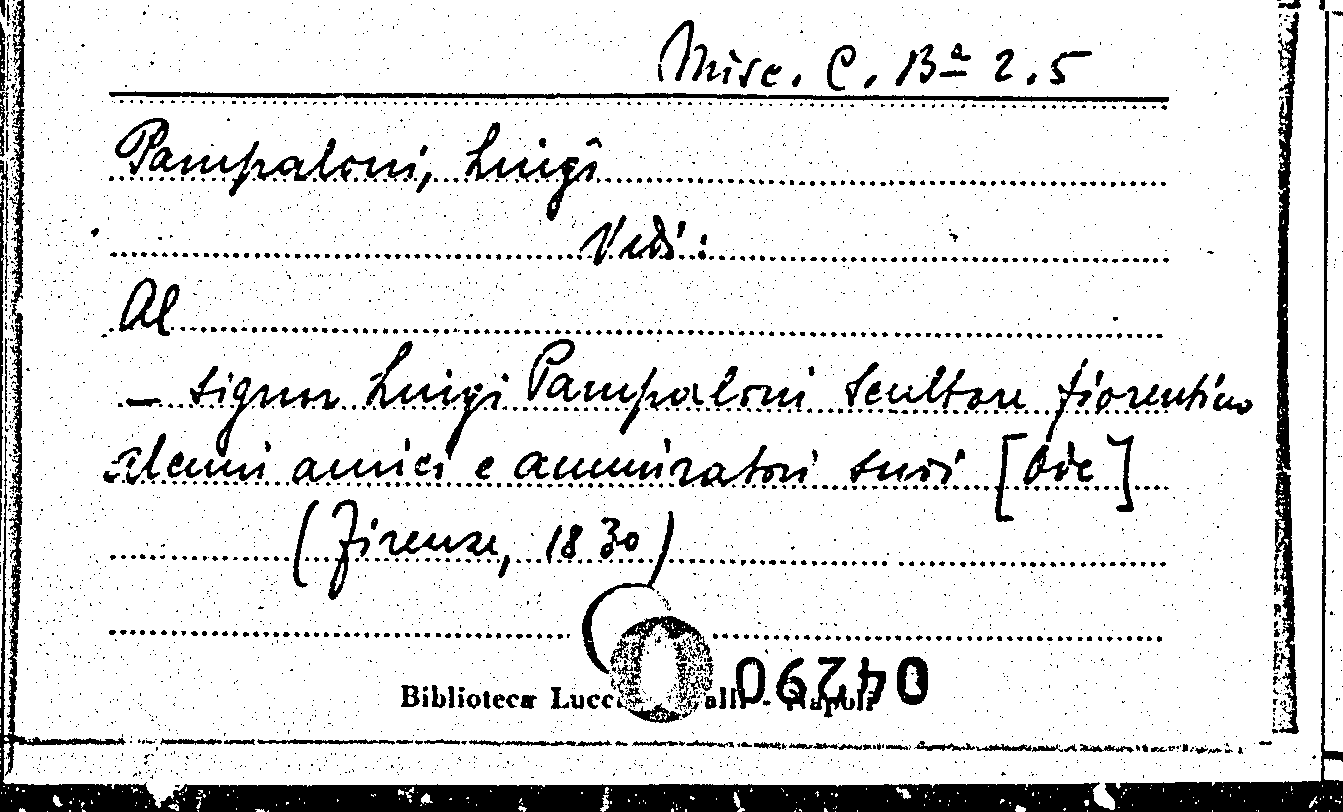 Misc. C. Bª 2.5
Pampaloni, Luigi
Vedi:
Al
– signor Luigi Pampaloni scultore fiorentino
alcuni amici e ammiratori suoi [Ode]
(Firenze, 1830)
Biblioteca - Napoli
04290